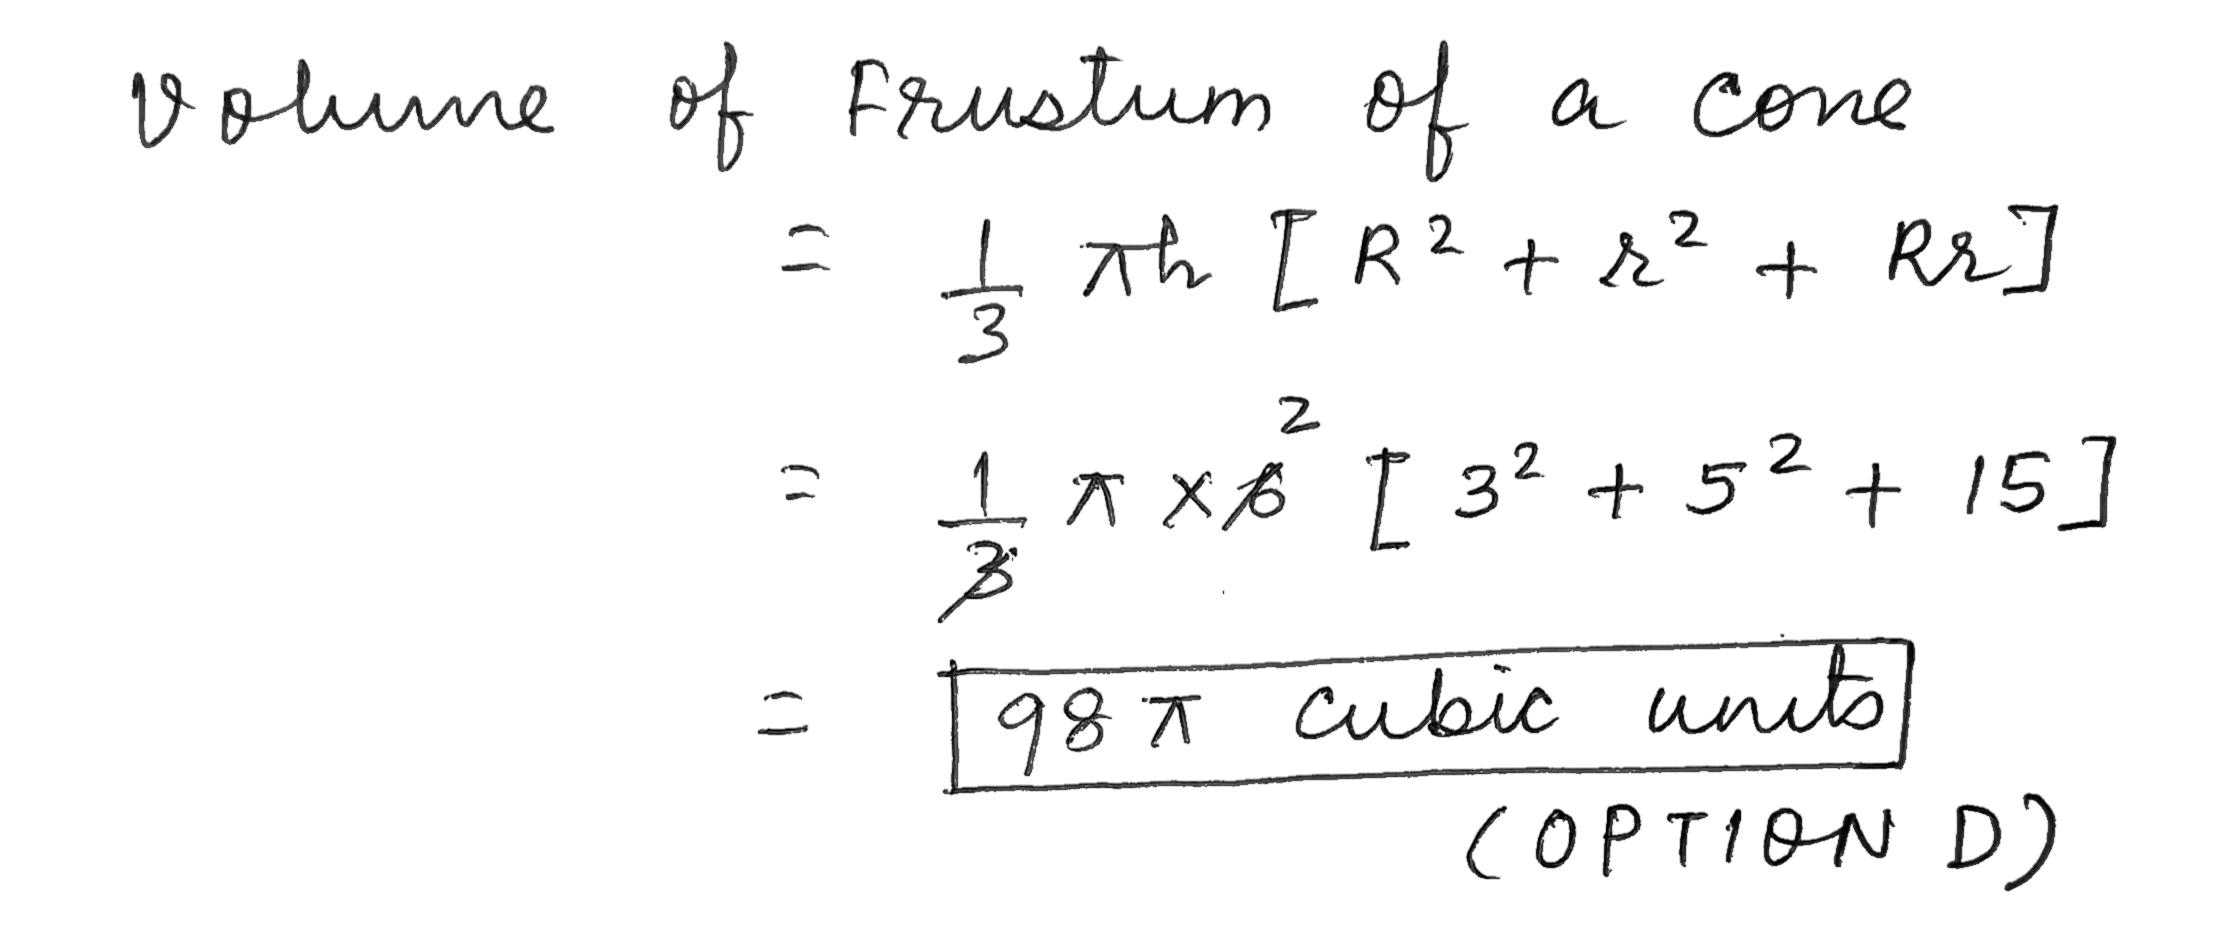 Volume of Frustum of a cone
= 1/3 πh [R² + r² + Rr]
= 1/3 π × 6 2 [3² + 5² + 15]
= 98 π cubic units
(OPTION D)